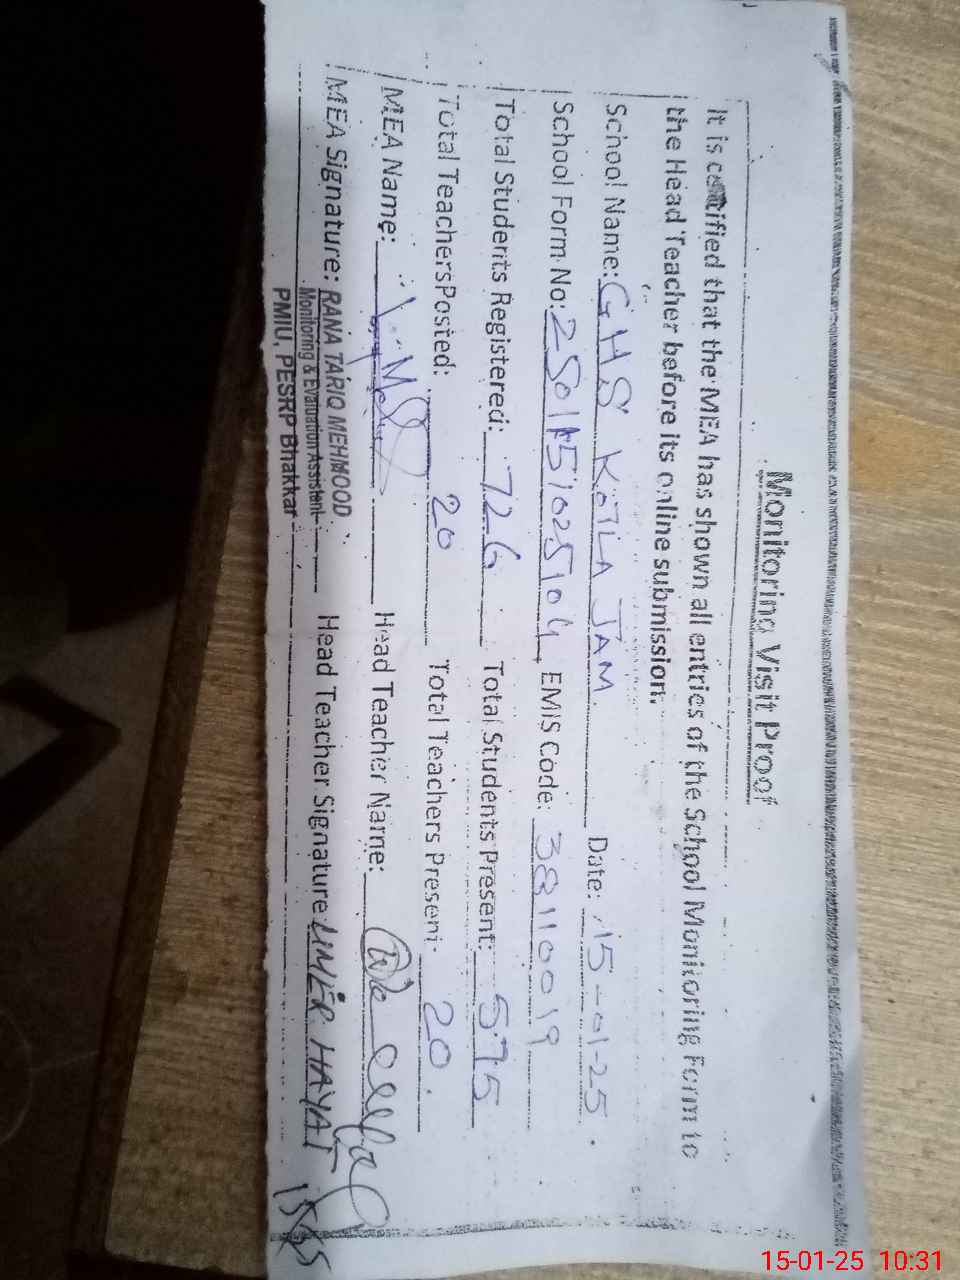 Monitoring Visit Proof
It is certified that the MEA has shown all entries of the School Monitoring Form to
the Head Teacher before its online submission.
School Name: GHS KOTLA JAM. Date: 15-01-25
School Form No: 2501151025104 EMIS Code: 38110019
Total Students Registered: 726 Total Students Present: 575
Total Teachers Posted: 20 Total Teachers Present: 20.
MEA Name: Head Teacher Name:
MEA Signature: RANA TARIQ MEHMOOD Head Teacher Signature UMER HAYAT
Monitoring & Evaluation Assistant
PMIU, PESRP Bhakkar
15-01-25 10:31